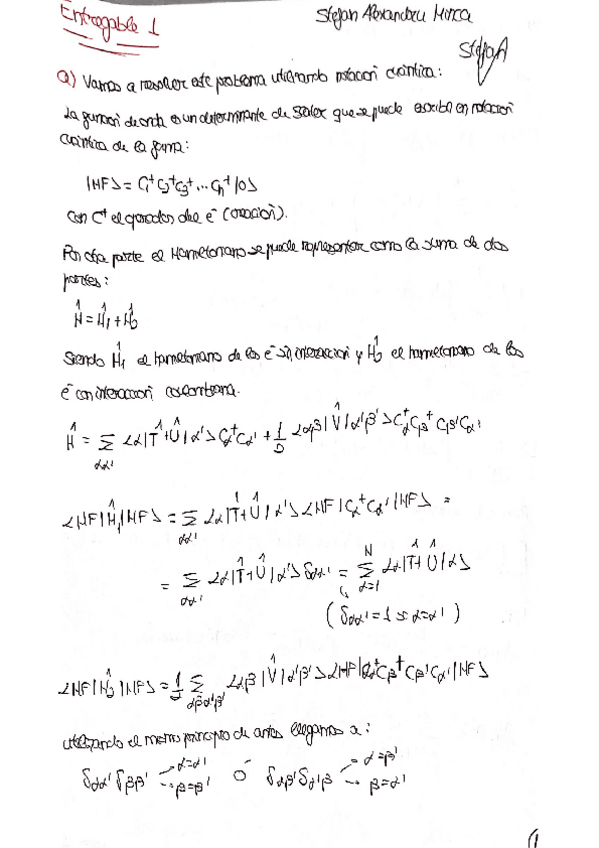 Entregable 1
Stefan Alexandru Mirca
Stefan
a) Vamos a resolver este problema utilizando notación cuántica:
La función de onda es un determinante de Slater que se puede escribir en notación
cuántica de la forma:
|HF> = C₁⁺ C₂⁺ C₃⁺ ... Cₙ⁺ |0>
con C⁺ el operador del e⁻ (creación).
Por otra parte el Hamiltoniano se puede representar como la suma de dos
partes:
Ĥ = Ĥ₁ + Ĥ₂
Siendo Ĥ₁ el hamiltoniano de los e⁻ sin interacción y Ĥ₂ el hamiltoniano de los
e⁻ con interacción coulombiana.
Ĥ = Σ_{αα'} <α|T̂+Û|α'> C_α⁺ C_α' + 1/2 <αβ|V̂|α'β'> C_α⁺ C_β⁺ C_β' C_α'
<HF|Ĥ₁|HF> = Σ_{αα'} <α|T̂+Û|α'> <HF|C_α⁺ C_α'|HF> =
= Σ_{αα'} <α|T̂+Û|α'> δ_{αα'} = Σ_{α=1}^{N} <α|T̂+Û|α>
(δ_{αα'} = 1 si α=α')
<HF|Ĥ₂|HF> = 1/2 Σ_{αβα'β'} <αβ|V̂|α'β'> <HF|C_α⁺ C_β⁺ C_β' C_α'|HF>
utilizando el mismo principio de antes llegamos a:
δ_{αα'} δ_{ββ'} → α=α' → β=β' ó δ_{αβ'} δ_{α'β} → α=β' → β=α'
1